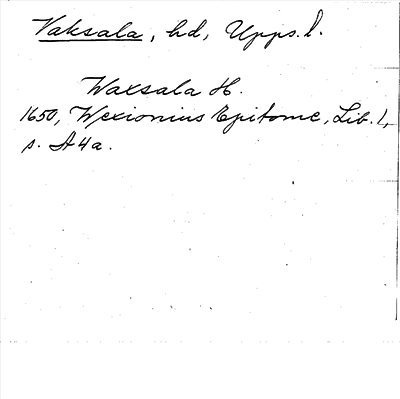 Vaksala, hd, Upps. l.
Waxsala H.
1650, Wexionius Epitome, Lib. 1,
s. A4a.